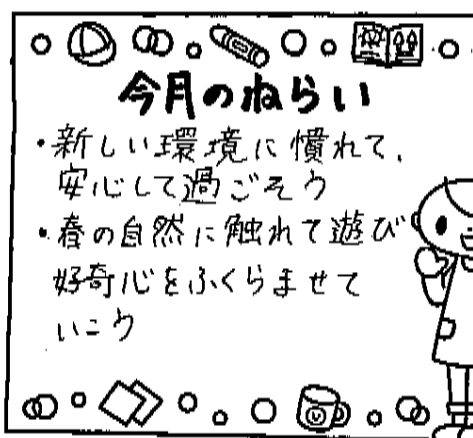 今月のねらい
・新しい環境に慣れて、
安心して過ごそう
・春の自然に触れて遊び
好奇心をふくらませて
いこう